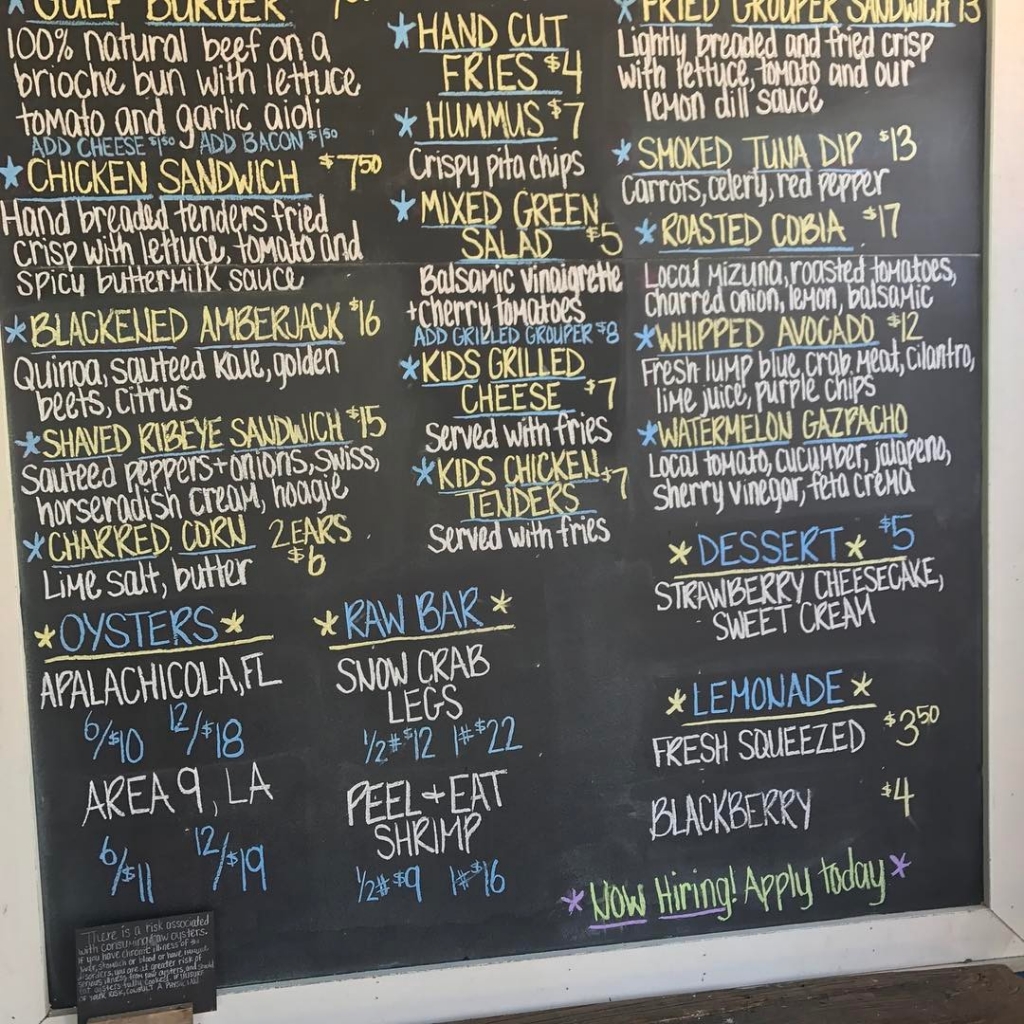 GULF BURGER
100% natural beef on a
brioche bun with lettuce
tomato and garlic aioli
ADD CHEESE $1.50 ADD BACON $1.50
CHICKEN SANDWICH $7.50
Hand breaded tenders fried
crisp with lettuce, tomato and
spicy buttermilk sauce
BLACKENED AMBERJACK $16
Quinoa, sauteed kale, golden
beets, citrus
SHAVED RIBEYE SANDWICH $15
Sauteed peppers + onions, swiss,
horseradish cream, hoagie
CHARRED CORN 2 EARS
$6
Lime salt, butter
HAND CUT
FRIES $4
HUMMUS $7
Crispy pita chips
MIXED GREEN
SALAD $5
Balsamic vinaigrette
+ cherry tomatoes
ADD GRILLED GROUPER $8
KIDS GRILLED
CHEESE $7
Served with fries
KIDS CHICKEN $7
TENDERS
Served with fries
FRIED GROUPER SANDWICH 13
Lightly breaded and fried crisp
with lettuce, tomato and our
lemon dill sauce
SMOKED TUNA DIP $13
Carrots, celery, red pepper
ROASTED COBIA $17
Local mizuna, roasted tomatoes,
charred onion, lemon, balsamic
WHIPPED AVOCADO $12
Fresh lump blue, crab meat, cilantro,
lime juice, purple chips
WATERMELON GAZPACHO
Local tomato, cucumber, jalapeno,
sherry vinegar, feta crema
DESSERT $5
STRAWBERRY CHEESECAKE,
SWEET CREAM
OYSTERS
APALACHICOLA, FL
6/$10 12/$18
AREA 9, LA
6/$11 12/$19
RAW BAR
SNOW CRAB
LEGS
1/2# $12 1# $22
PEEL + EAT
SHRIMP
1/2# $9 1# $16
LEMONADE
FRESH SQUEEZED $3.50
BLACKBERRY $4
Now Hiring! Apply today
There is a risk associated
with consuming raw oysters.
if you have chronic illness of the
liver, stomach or blood or have immune
disorders, you are at greater risk of
serious illness from raw oysters, and should
eat oysters fully cooked. if unsure
of your risk, consult a physician